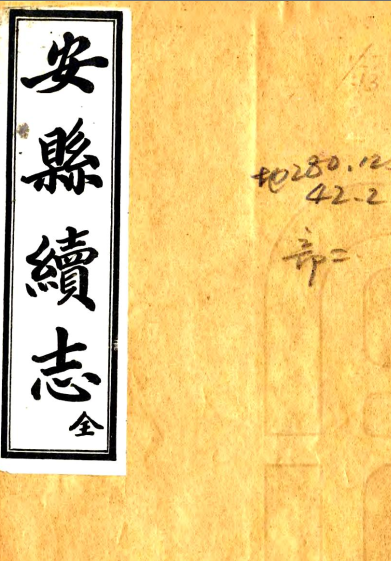 安縣續志
全
地280.12
42.2
部二